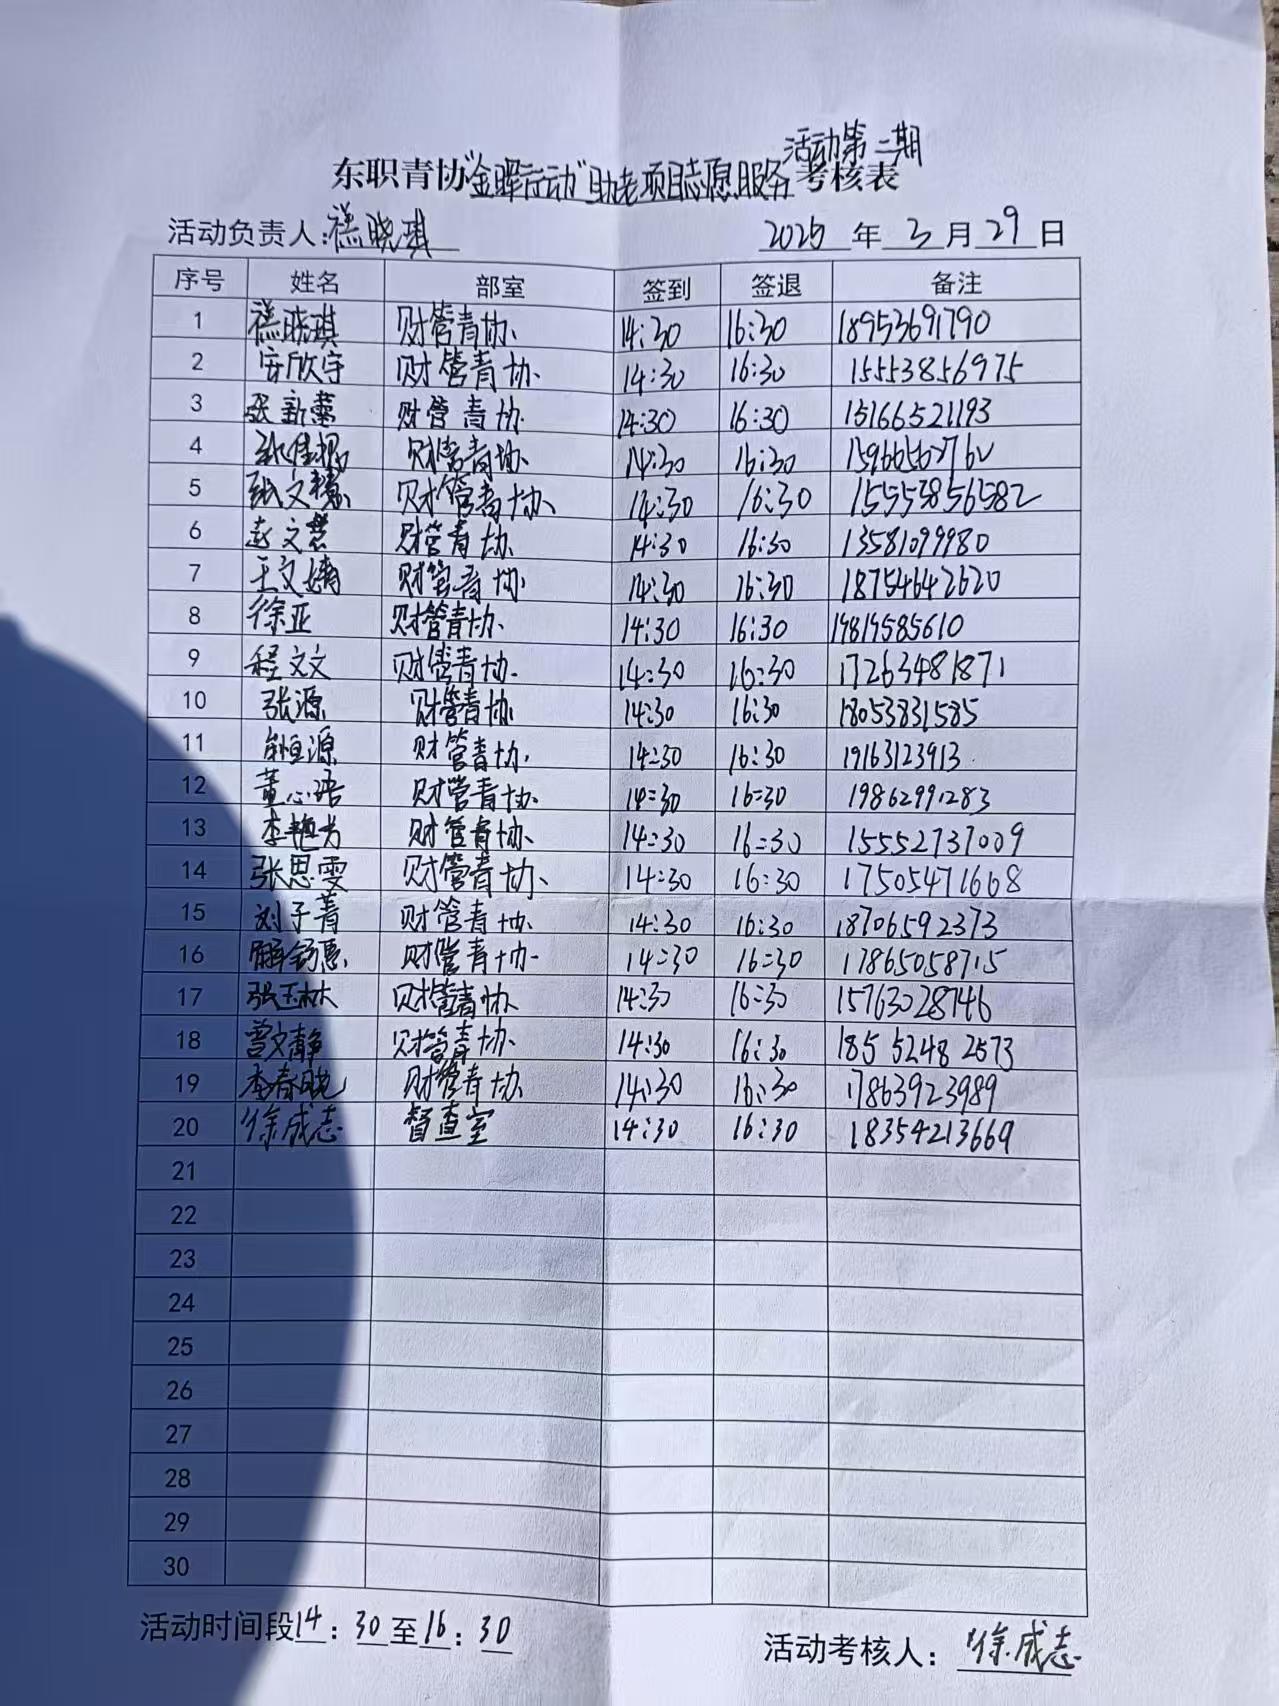 活动第二期
东职青协“金晖行动”助老项目志愿服务考核表
活动负责人:禚晓琪 2025 年 3 月 29 日
序号 姓名 部室 签到 签退 备注
1 禚晓琪 财管青协 14:30 16:30 18953691790
2 安欣宇 财管青协 14:30 16:30 15553856975
3 张新蕾 财管青协 14:30 16:30 15166521193
4 财管青协 14:30 16:30
5 张文慧 财管青协 14:30 16:30 15553856582
6 赵文慧 财管青协 14:30 16:30 13581099980
7 王文婧 财管青协 14:30 16:30 18754642620
8 徐亚 财管青协 14:30 16:30 19819585610
9 程文文 财管青协 14:30 16:30 17263481871
10 张源 财管青协 14:30 16:30 18053831585
11 财管青协 14:30 16:30 19163123913
12 董心语 财管青协 14:30 16:30 19862991283
13 李艳芳 财管青协 14:30 16:30 15552737009
14 张思雯 财管青协 14:30 16:30 17505471668
15 刘子菁 财管青协 14:30 16:30 18706592373
16 解舒惠 财管青协 14:30 16:30 17865058715
17 张玉林 财管青协 14:30 16:30 15763028746
18 曹文静 财管青协 14:30 16:30 185 5248 2573
19 李春晓 财管青协 14:30 16:30 17863923989
20 徐成志 督查室 14:30 16:30 18354213669
21
22
23
24
25
26
27
28
29
30
活动时间段14:30至16:30 活动考核人:徐成志